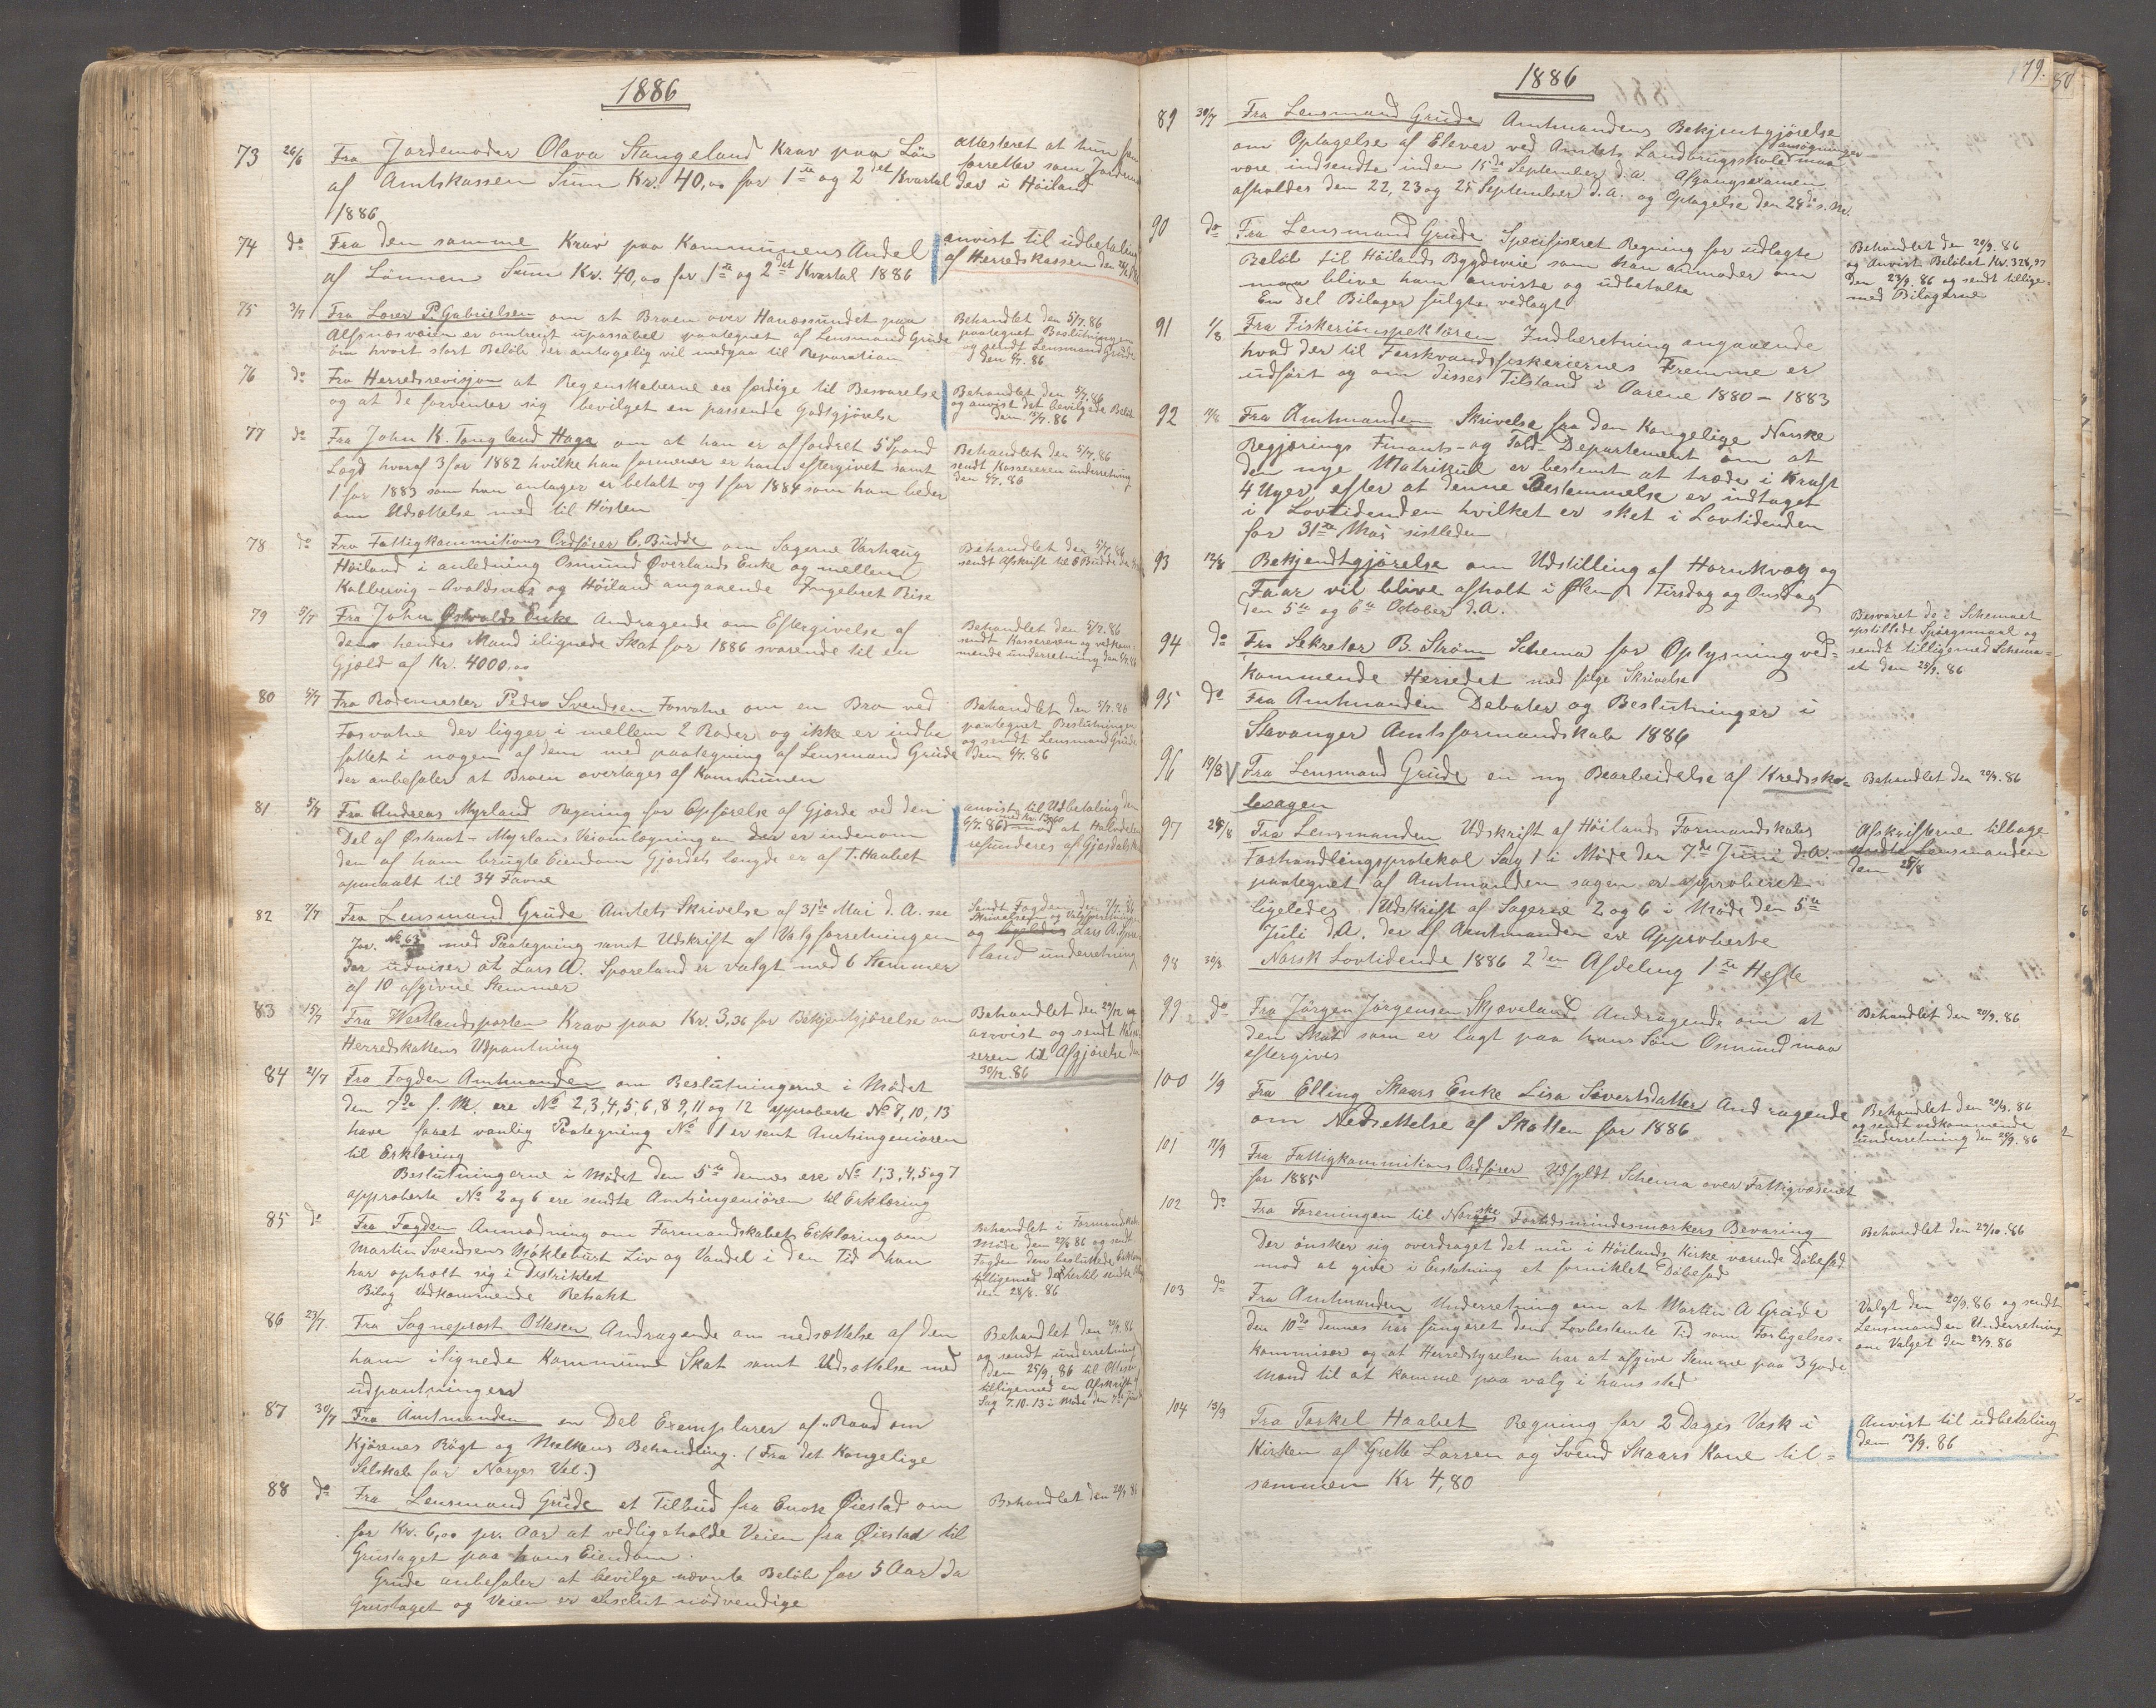 1886
73 26/6 Fra Jordemoder Olava Stangeland Krav paa Løn
af Amtskassen Sum Kr. 40,00 for 1ste og 2det Kvartal
1886
attesteret at hun
forretter som Jordmo
der i Høiland
74 do Fra den samme Krav paa Kommunens Andel
af Lønnen Sum Kr. 40,00 for 1ste og 2det Kvartal 1886
anvist til udbetaling
af Herredskassen den
75 3/7 Fra Lærer P. Gabrielsen om at Broen over Hanæssundet paa
Alsnæsveien er omtrent upassabel paategnet af Lensmand Grude
om hvort stort Beløb der antagelig vil medgaa til Reparation
Behandlet den 5/7. 86
paategnet Beslutningen
og sendt Lensmand Grude
den 9/7. 86
76 do Fra Herredsrevisjon at Regenskaberne ere færdige til Besvarelse
og at de forventer sig bevilget en passende Godtgjørelse
Behandlet den 5/7. 86
og anvist det bevilgede Beløb
den 13/7. 86
77 do Fra John K. Tengland Hage om at han er affordret 5 Spand
Lægd hvoraf 3 for 1882 hvilke han formener er ham eftergivet samt
1 for 1883 som han antager er betalt og 1 for 1884 som han beder
om Udsættelse med til Høsten
Behandlet den 5/7. 86
sendt Kassereren underretning
den 9/7. 86
78 do Fra Fattigkommitions Ordfører C. Budde om Sagerne Varhaug
Høiland i anledning Osmund Øverlands Enke og mellem
Kobbervig – Avaldsnæs og Høiland angaaende Ingebret Riise
Behandlet den 5/7. 86
sendt Afskrift til C Budde
79 5/7 Fra John Østvolds Enke Andragende om Eftergivelse af
den hendes Mand ilignede Skat for 1886 svarende til en
Gjæld af Kr. 4000,00
Behandlet den 5/7. 86
sendt Kassereren og vedkom-
mende underretning den 9/7. 86
80 5/7 Fra Rodemester Peder Svendsen Fosvatne om en Bro ved
Fosvatne der ligger i mellem 2 Roder og ikke er indbe
fattet i nogen af dem med paategning af Lensmand Grude
der anbefaler at Broen overtages af Kommunen
Behandlet den 5/7. 86
paategnet Beslutningen
og sendt Lensmand Grude
den 9/7. 86
81 5/7 Fra Andreas Myrland Regning for Opførelse af Gjærde ved den
Del af Østraat – Myrlans Veiomlægningen der er indenom
den af ham brugte Eiendom Gjærdets længde er af T. Haabet
opmaalt til 34 Favne
anvist til Udbetaling den
9/7. 86 med Kr. 13,60 mod at Halvdelen
refunderes af Gjesdals
82 7/7 Fra Lensmand Grude Amtets Skrivelse af 31de Mai d. A. see
Jor. No 63 med Paategning samt Udskrift af Valgforretningen
der udviser at Lars A. Sporeland er valgt med 6 Stemmer
af 10 afgivne Stemmer
Sendt Fogden den 7/7. 86
Skrivelsen og Valgforretningen
og Lars A. Spore
land underretning
83 15/7 Fra Westlandsposten Krav paa Kr. 3,36 for Bekjentgjørelse om
Herredskattens Udpantning
Behandlet den 29/12 og
anvist og sendt Kasse
reren til Afgjørelse den
30/12. 86
84 21/7 Fra Fogden Amtmanden om Beslutningerne i Mødet
den 7de f. M. ere No 2,3,4,5,6,8 9,11 og 12 approberte No 7, 10, 13
have faaet vanlig Paategning No 1 er sent Amtsingeniøren
til Erklæring
Beslutningerne i Mødet den 5te dennes ere No 1,3,4,5 og 7
approberte No 2 og 6 ere sendte Amtsingeniøren til Erklæring
85 do Fra Fogden Anmodning om Formandskabets Erklæring om
Martin Svendsens Mokleburst Liv og Vandel i den Tid han
har opholt sig i Distriktet
Bilag Vedkommende Retsakt
Behandlet i Formandskabs
Møde den 20/8 86 og sendt
Fogden den besluttede Erklæring
tilligemed de hertil sendte
den 28/8. 86
86 23/7 Fra Sogneprest Ottesen Andragende om nedsættelse af den
ham ilignede Kommune Skat samt Udsættelse med
udpantningen
Behandlet den 20/9. 86
og sendt underretning
den 25/9. 86 til Ottesen
tilligemed en Afskrift
Sag 7.10.13 i Møde den 7de Juni
87 30/7 Fra Amtmanden en Del Exemplarer af "Raad om
Kjørenes Røgt og Melkens Behandling. (Fra det Kongelige
Selskab for Norges Vel.)
88 do Fra Lensmand Grude et Tilbud fra Enok Øiestad om
for Kr. 6,00 pr. Aar at vedligeholde Veien fra Øiestad til
Grustaget paa hans Eiendom.
Grude anbefaler at bevilge nævnte Beløb for 5 Aar da
Grustaget og Veien er absolut nødvendige
Behandlet den 20/9 86
1886
79. 80
89 30/7 Fra Lensmand Grude Amtmandens Bekjentgjørelse
om Optagelse af Elever ved Amtets Landbrugsskole ansøgninger maa
være indsendte inden 15de September d. A. Afgangsexamen
afholdes den 22, 23 og 25 September d. A. og Optagelse den 24de s. M.
90 do Fra Lensmand Grude Specifiseret Regning for udlagte
Beløb til Høilands Bygdeveie som han anmoder om
maa blive ham anviste og udbetalte
En Del Bilager fulgte vedlagt
Behandlet den 20/9. 86
og Anvist Beløbet Kr. 328,97
den 23/9. 86 og sendt tillige-
med Bilagerne
91 1/8 Fra Fiskeriinspektøren Indberetning angaaende
hvad der til Ferskvandsfiskeriernes Fremme er
udført og om disses Tilstand i Aarene 1880 – 1883
92 11/8 Fra Amtmanden Skrivelse fra den Kongelige Norske
Regjerings Finants- og Told Departement om at
den nye Matrikul er bestemt at træde i Kraft
4 Uger efter at denne Bestemmelse er indtaget
i Lovtidenden hvilket er sket i Lovtidenden
for 31te Mai sistleden
93 12/8 Bekjendtgjørelse om Udstilling af Hornkvæg og
Faar vil blive afholt i Ølen Tirsdag og Onsdag
den 5te og 6te October d. A.
94 do Fra Sekretær B. Strøm Schema for Oplysning ved-
kommende Herredet med følge Skrivelse
Besvaret de i Schemaet
opstillede Spørgsmaal og
sendt tilligemed Schema-
et den 25/9. 86
95 do Fra Amtmanden Debater og Beslutninger i
Stavanger Amtsformandskab 1886
96 19/8 Fra Lensmand Grude en ny Bearbeidelse af Kredssko-
lesagen
Behandlet den 20/9. 86
97 28/8 Fra Lensmanden Udskrift af Høilands Formandskabs
Forhandlingsprotokol Sag 1 i Møde der 7de Juni d. A.
paategnet af Amtmanden sagen er approberet
ligeledes 1 Udskrift af Sagerne 2 og 6 i Møde den 5te
Juli d. A. der af Amtmanden ere Approberte
Afskrifterne tilbage
sendte Lensmanden
den 28/8
98 30/8. Norsk Lovtidende 1886 2den Afdeling 1ste Hefte
99 do Fra Jørgen Jørgensen Skjæveland Andragende om at
den Skat som er lagt paa hans Søn Osmund maa
eftergives
Behandlet den 20/9. 86
100 1/9 Fra Elling Skaars Enke Lisa Sivertsdatter Andragende
om Nedsettelse af Skatten for 1886
Behandlet den 20/9. 86
og sendt vedkommende
underretning den 28/9. 86
101 11/9 Fra Fattigkommitions Ordfører Udfyldt Schema over Fattigvæsenet
for 1885
102 do Fra Foreningen til Norske Fortidsmindesmærkers Bevaring
Der ønsker sig overdraget det nu i Høilands Kirke værende Døbefad
mod at give i Erstatning et forniklet Døbefad
Behandlet den 29/10. 86
103 do Fra Amtmanden Underretning om at Martin A Grude
den 10de dennes har fungeret den Lovbestemte Tid som Forligelses-
kommisær og at Herredstyrelsen har at afgive Stemme paa 3 gode
Mænd til at komme paa valg i hans sted
Valgt den 20/9. 86 og sendt
Lensmanden Underretning
om Valget den 27/9. 86
104 13/9 Fra Torkel Haabet Regning for 2 Dages Vask i
Kirken af Grette Larsen og Svend Skaars Kone til-
sammen Kr 4,80
Anvist til udbetaling
den 13/9. 86